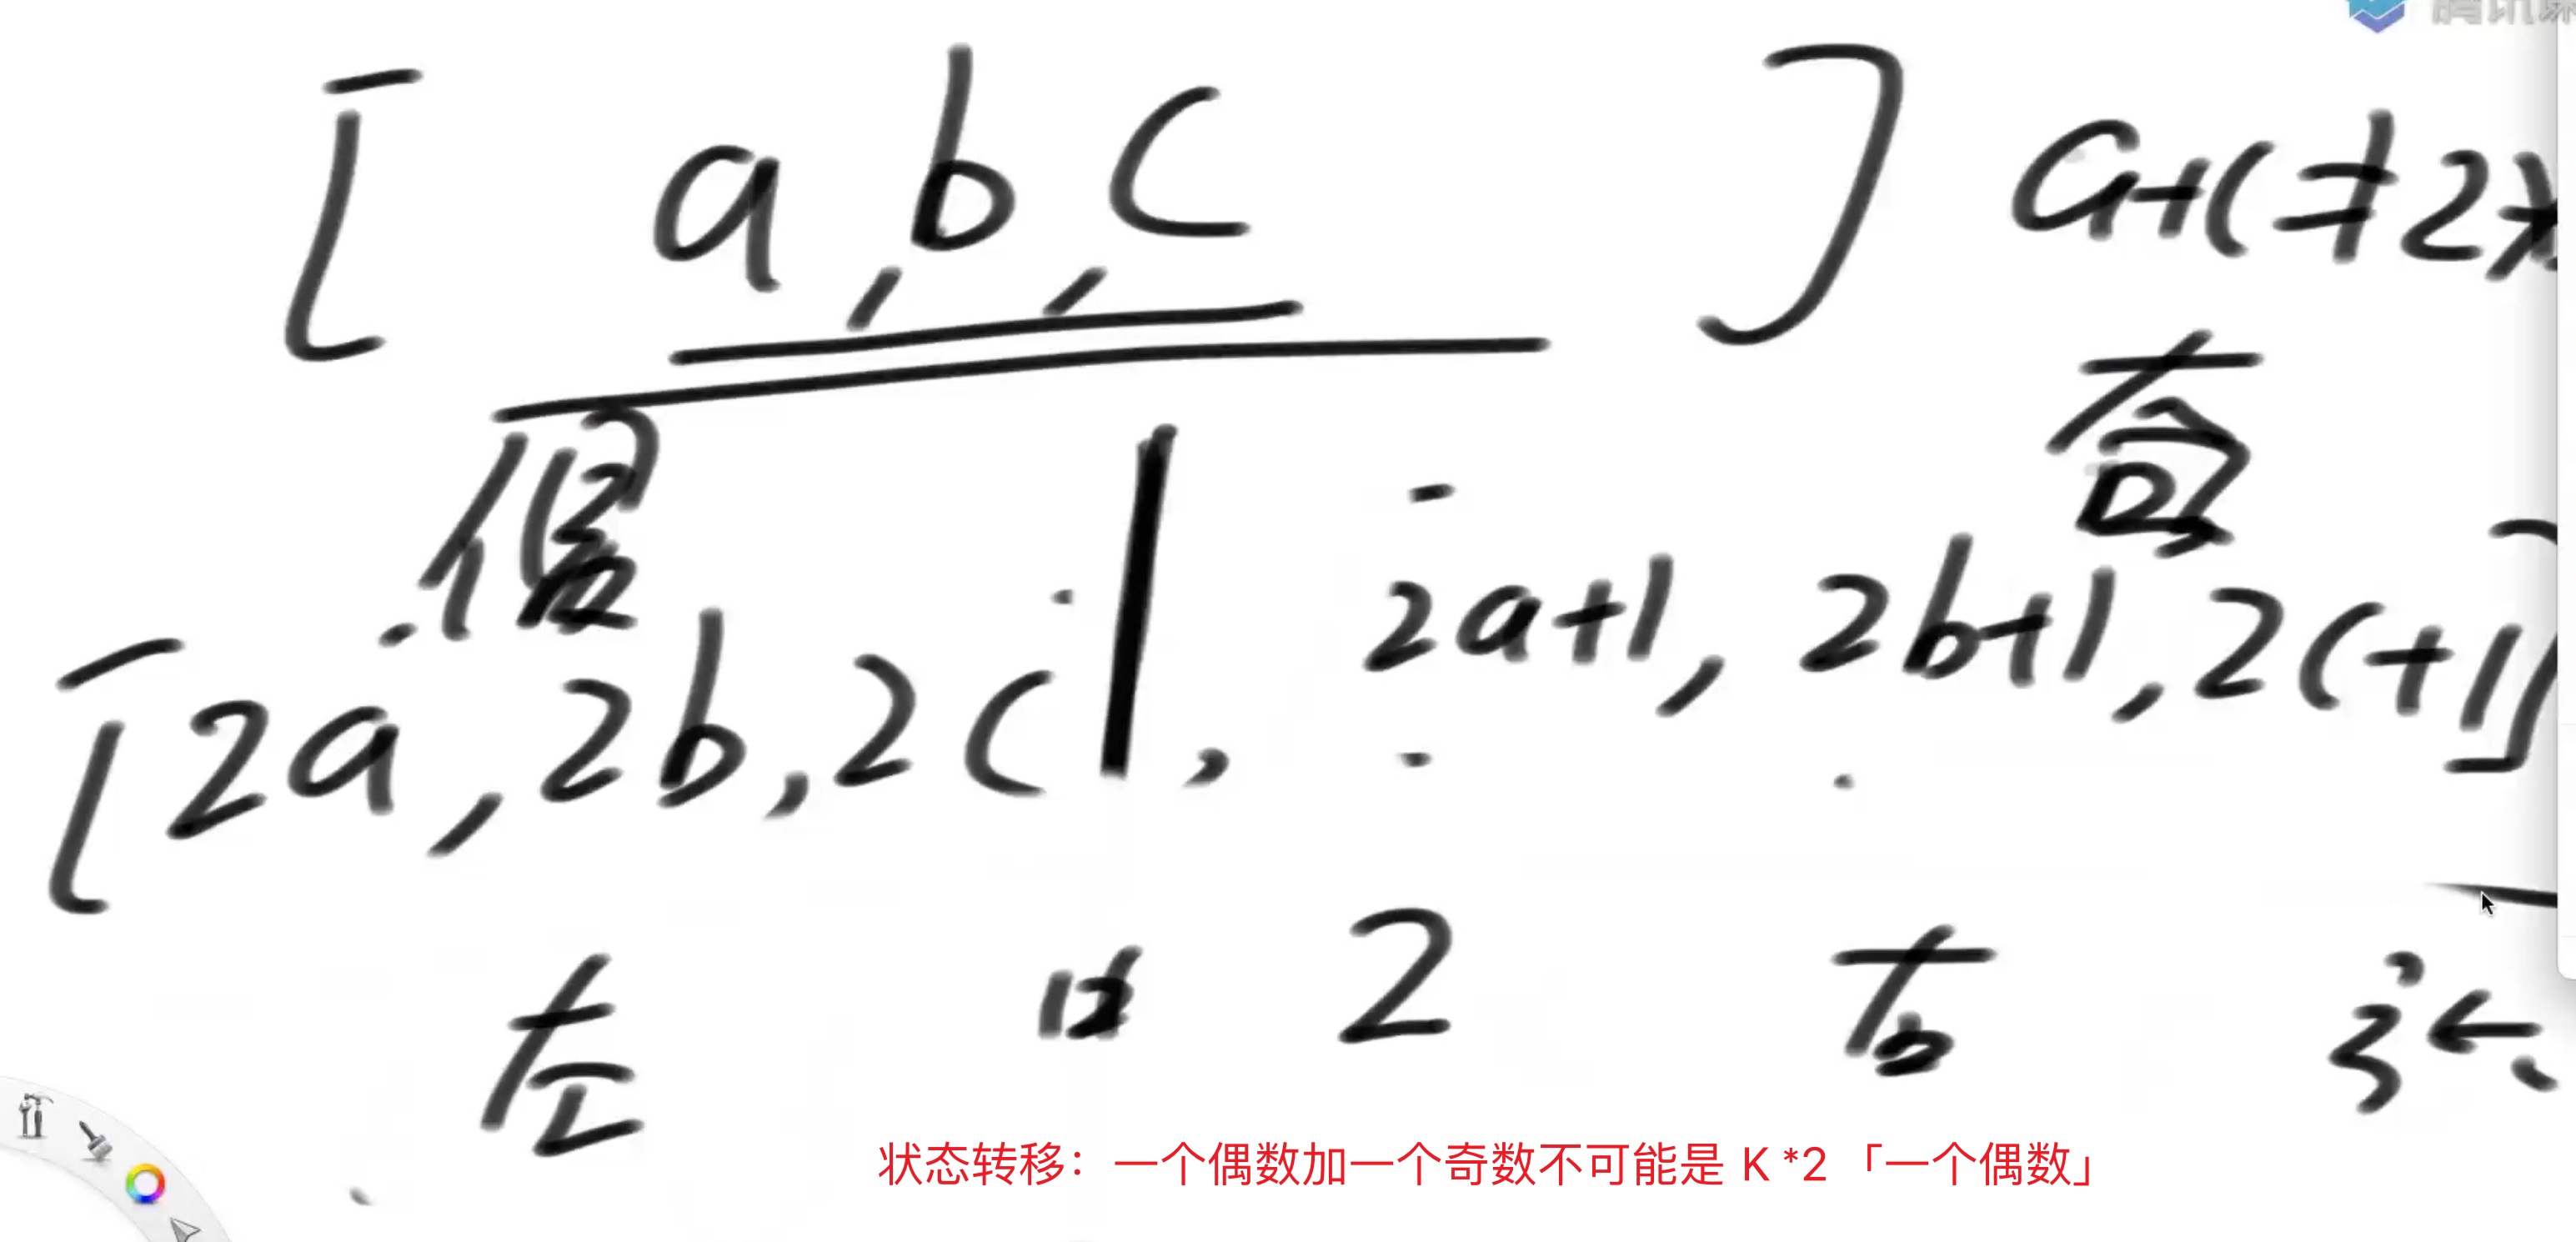 腾讯课
[ a, b, c ] a+c≠2*
偶 奇
[2a, 2b, 2c, 2a+1, 2b+1, 2c+1]
左 2 右 3←
状态转移：一个偶数加一个奇数不可能是 K *2 「一个偶数」